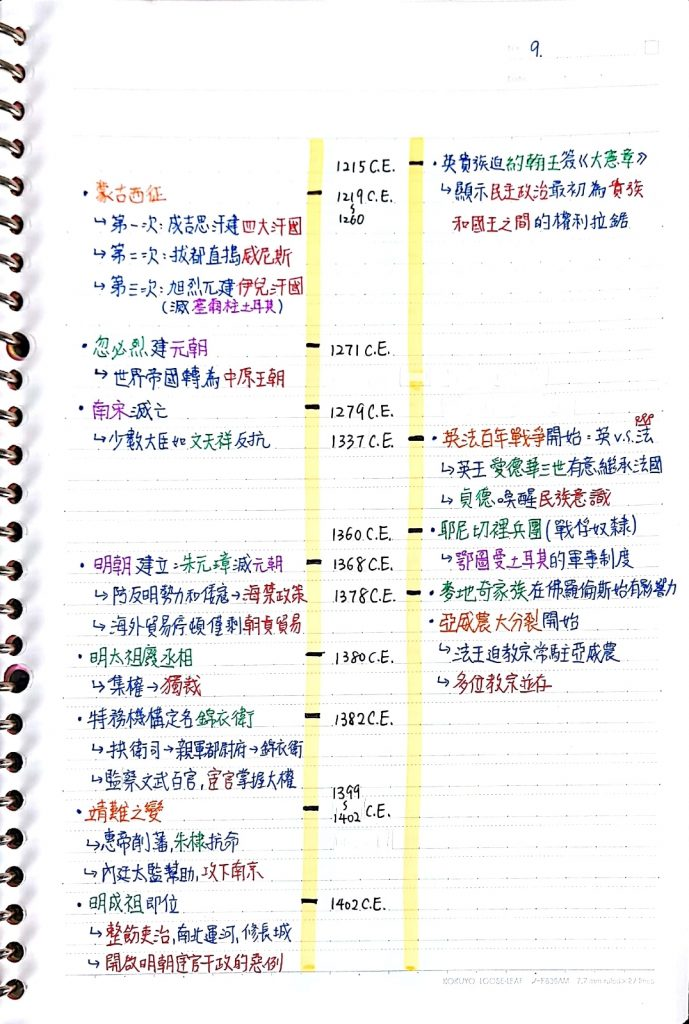 9.
1215 C.E.
・英貴族迫約翰王簽《大憲章》
↳顯示民主政治最初為貴族
和國王之間的權利拉鋸
・蒙古西征
1219 C.E.
∫
1260
↳第一次：成吉思汗建四大汗國
↳第二次：拔都直搗威尼斯
↳第三次：旭烈兀建伊兒汗國
(滅塞爾柱土耳其)
・忽必烈建元朝
1271 C.E.
↳世界帝國轉為中原王朝
・南宋滅亡
1279 C.E.
↳少數大臣如文天祥反抗
1337 C.E.
・英法百年戰爭開始：英v.s.法
↳英王愛德華三世有意繼承法國
↳貞德喚醒民族意識
1360 C.E.
・耶尼切裡兵團(戰俘奴隸)
↳鄂圖曼土耳其的軍事制度
・明朝建立：朱元璋滅元朝
1368 C.E.
↳防反明勢力和倭寇→海禁政策
↳海外貿易停頓僅剩朝貢貿易
1378 C.E.
・麥地奇家族在佛羅倫斯始有影響力
・亞威農大分裂開始
↳法王迫教宗常駐亞威農
↳多位教宗並存
・明太祖廢丞相
1380 C.E.
↳集權→獨裁
・特務機構定名錦衣衛
1382 C.E.
↳拱衛司→親軍都尉府→錦衣衛
↳監察文武百官,宦官掌握大權
・靖難之變
1399
∫
1402 C.E.
↳惠帝削藩,朱棣抗命
↳內廷太監幫助,攻下南京
・明成祖即位
1402 C.E.
↳整飭吏治,南北運河,修長城
↳開啟明朝宦官干政的惡例
KOKUYO LOOSE-LEAF